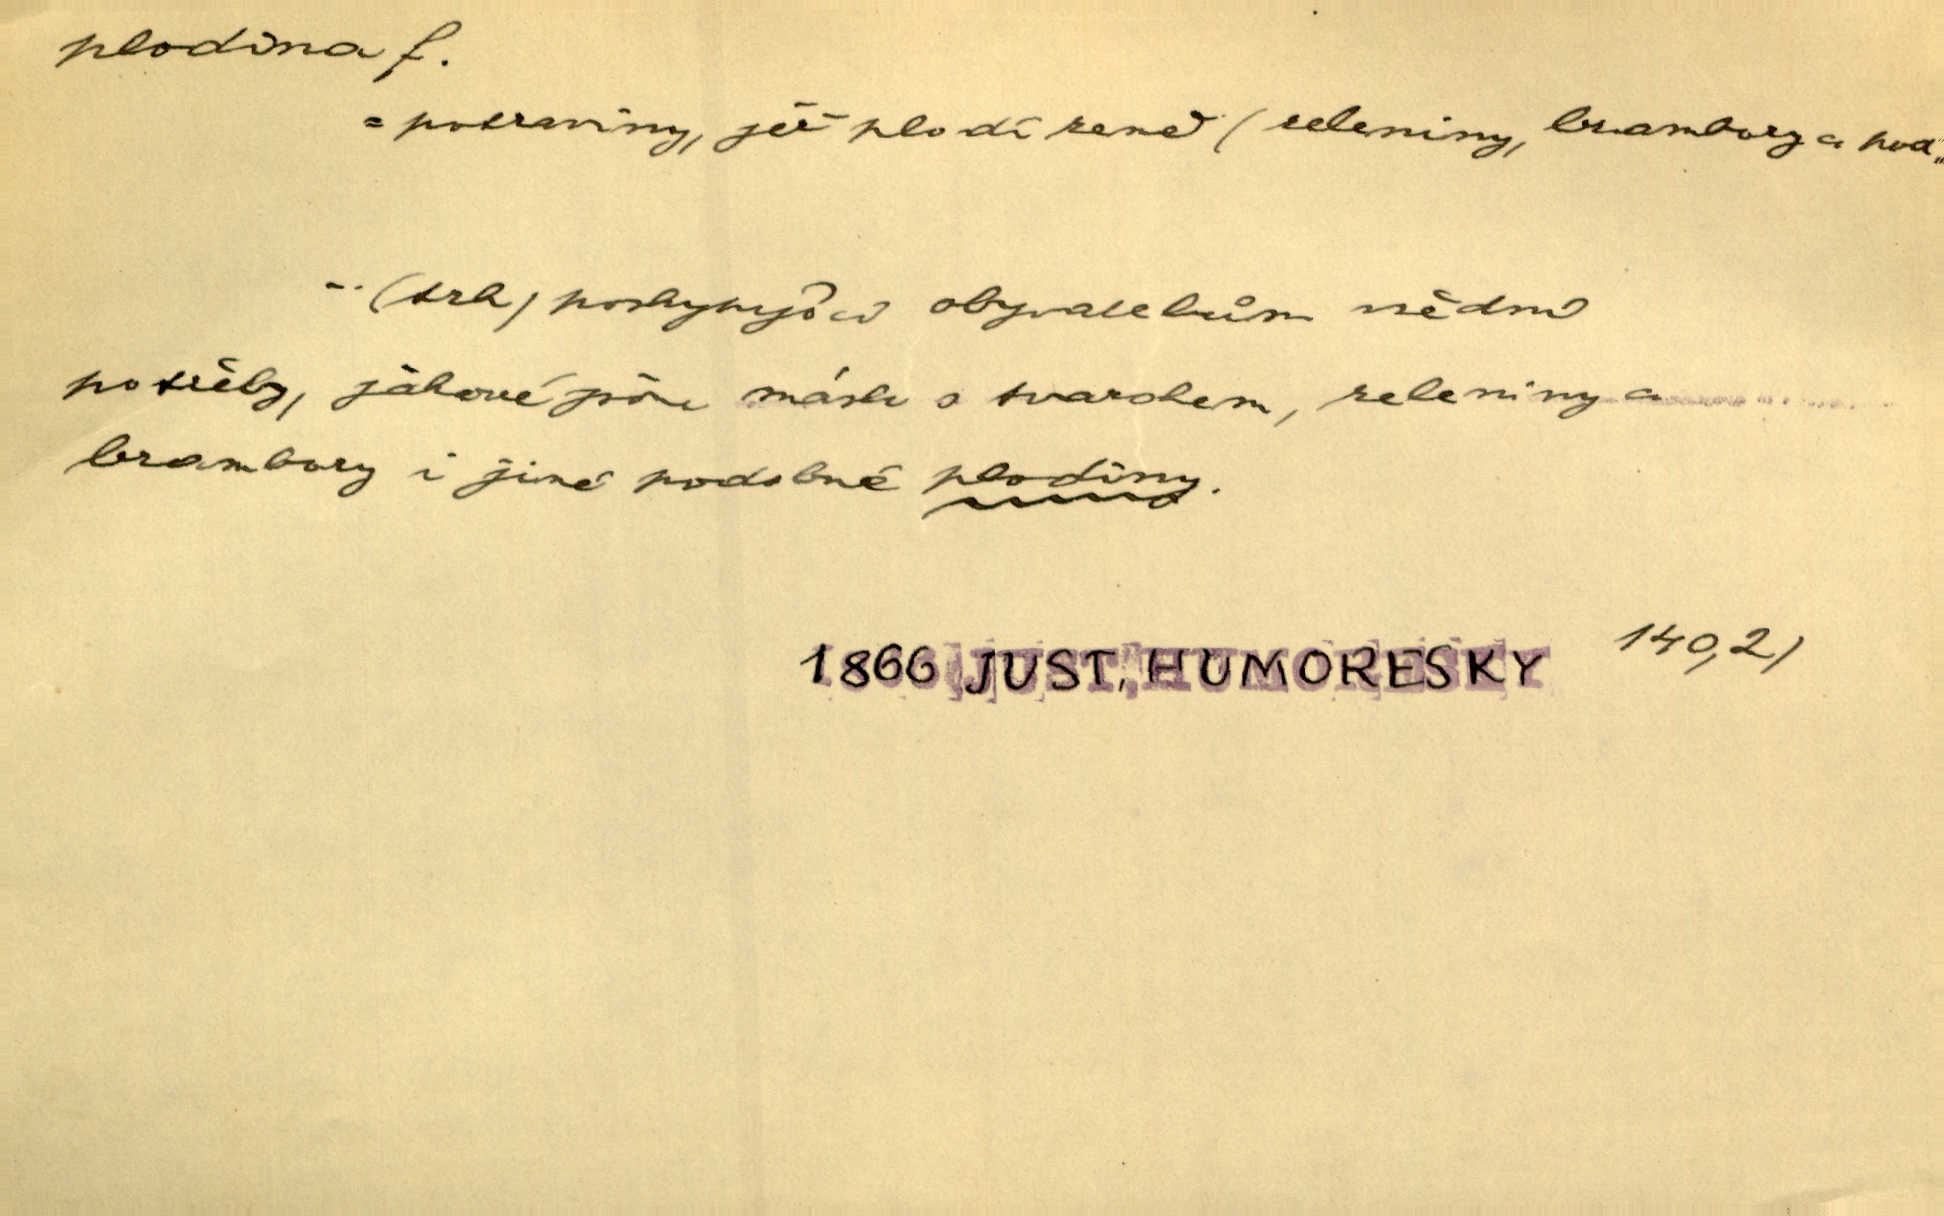 plodina f.
= potraviny, jež plodí země (zeleniny, brambory a pod.
.. (trh) poskytující obyvatelům všední
potřeby, jakové jsou máslo s tvarohem, zeleniny a
brambory i jiné podobné plodiny.
1866 JUST, HUMORESKY 140,2)